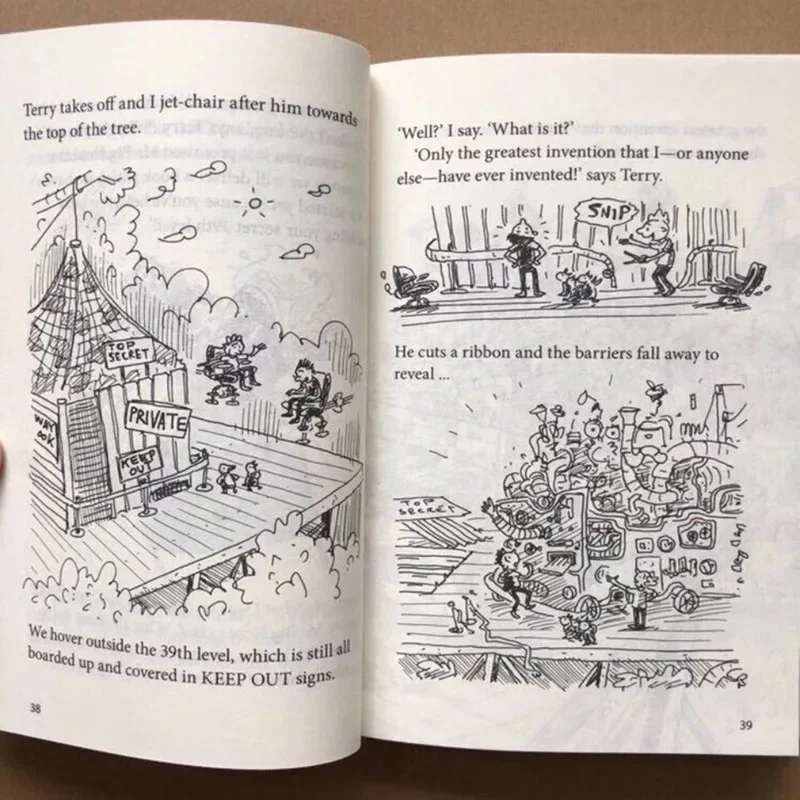 Terry takes off and I jet-chair after him towards
the top of the tree.
TOP
SECRET
PRIVATE
KEEP
OUT
We hover outside the 39th level, which is still all
boarded up and covered in KEEP OUT signs.
38
‘Well?’ I say. ‘What is it?’
‘Only the greatest invention that I—or anyone
else—have ever invented!’ says Terry.
SNIP
He cuts a ribbon and the barriers fall away to
reveal ...
TOP
SECRET
39